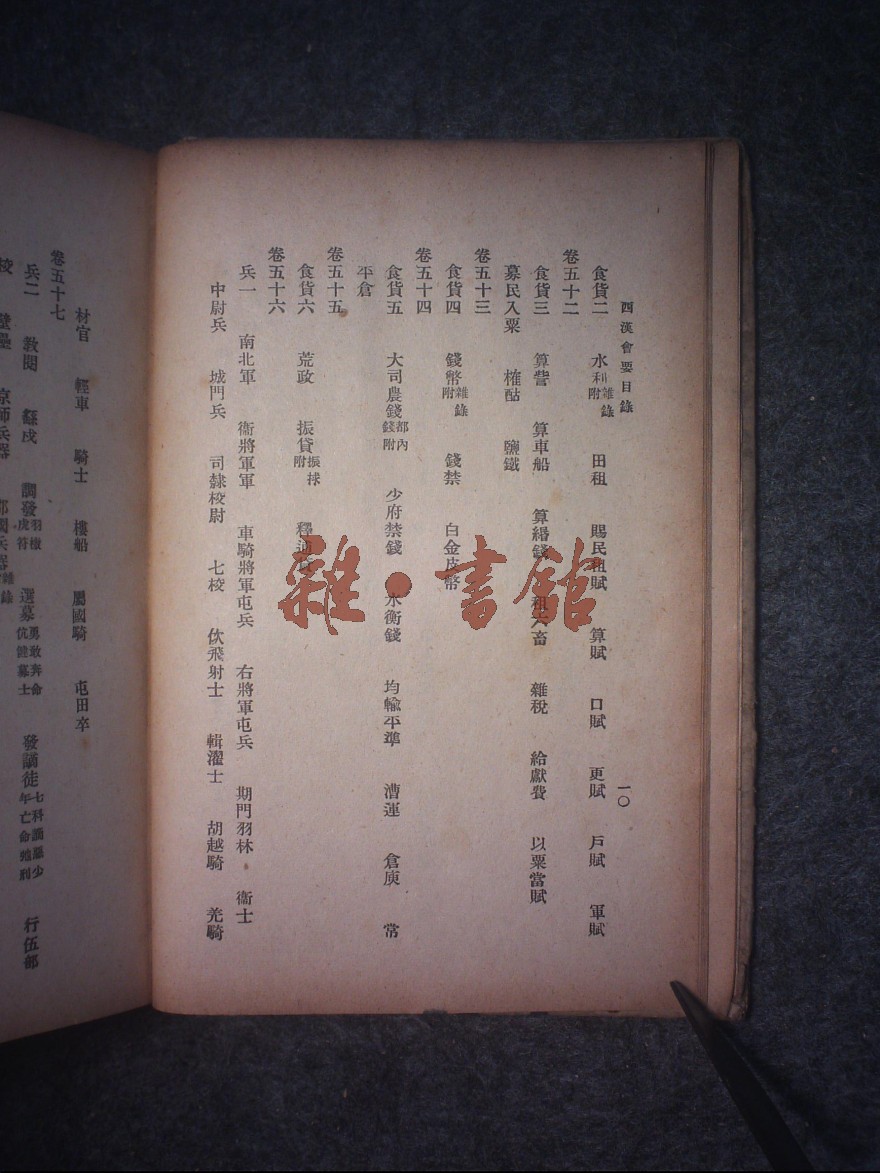 西漢會要目錄
一〇
食貨二 水利雜錄附 田租 賜民租賦 算賦 口賦 更賦 戶賦 軍賦
卷五十二
食貨三 算訾 算車船 算緡錢 租六畜 雜稅 給獻費 以粟當賦
募民入粟 榷酤 鹽鐵
卷五十三
食貨四 錢幣雜錄附 錢禁 白金皮幣
卷五十四
食貨五 大司農錢都內錢附 少府禁錢 水衡錢 均輸平準 漕運 倉庾 常
平倉
卷五十五
食貨六 荒政 振貸振捄附 釋逋
卷五十六
兵一 南北軍 衞將軍軍 車騎將軍屯兵 右將軍屯兵 期門羽林 衞士
中尉兵 城門兵 司隸校尉 七校 佽飛射士 輯濯士 胡越騎 羌騎
材官 輕車 騎士 樓船 屬國騎 屯田卒
卷五十七
兵二 教閱 繇戍 調發羽檄虎符 選募勇敢奔命伉健募士 發謫徒七科謫惡少年亡命弛刑 行伍部
校 壁壘 京師兵器 郡國兵器雜錄
雜·書館